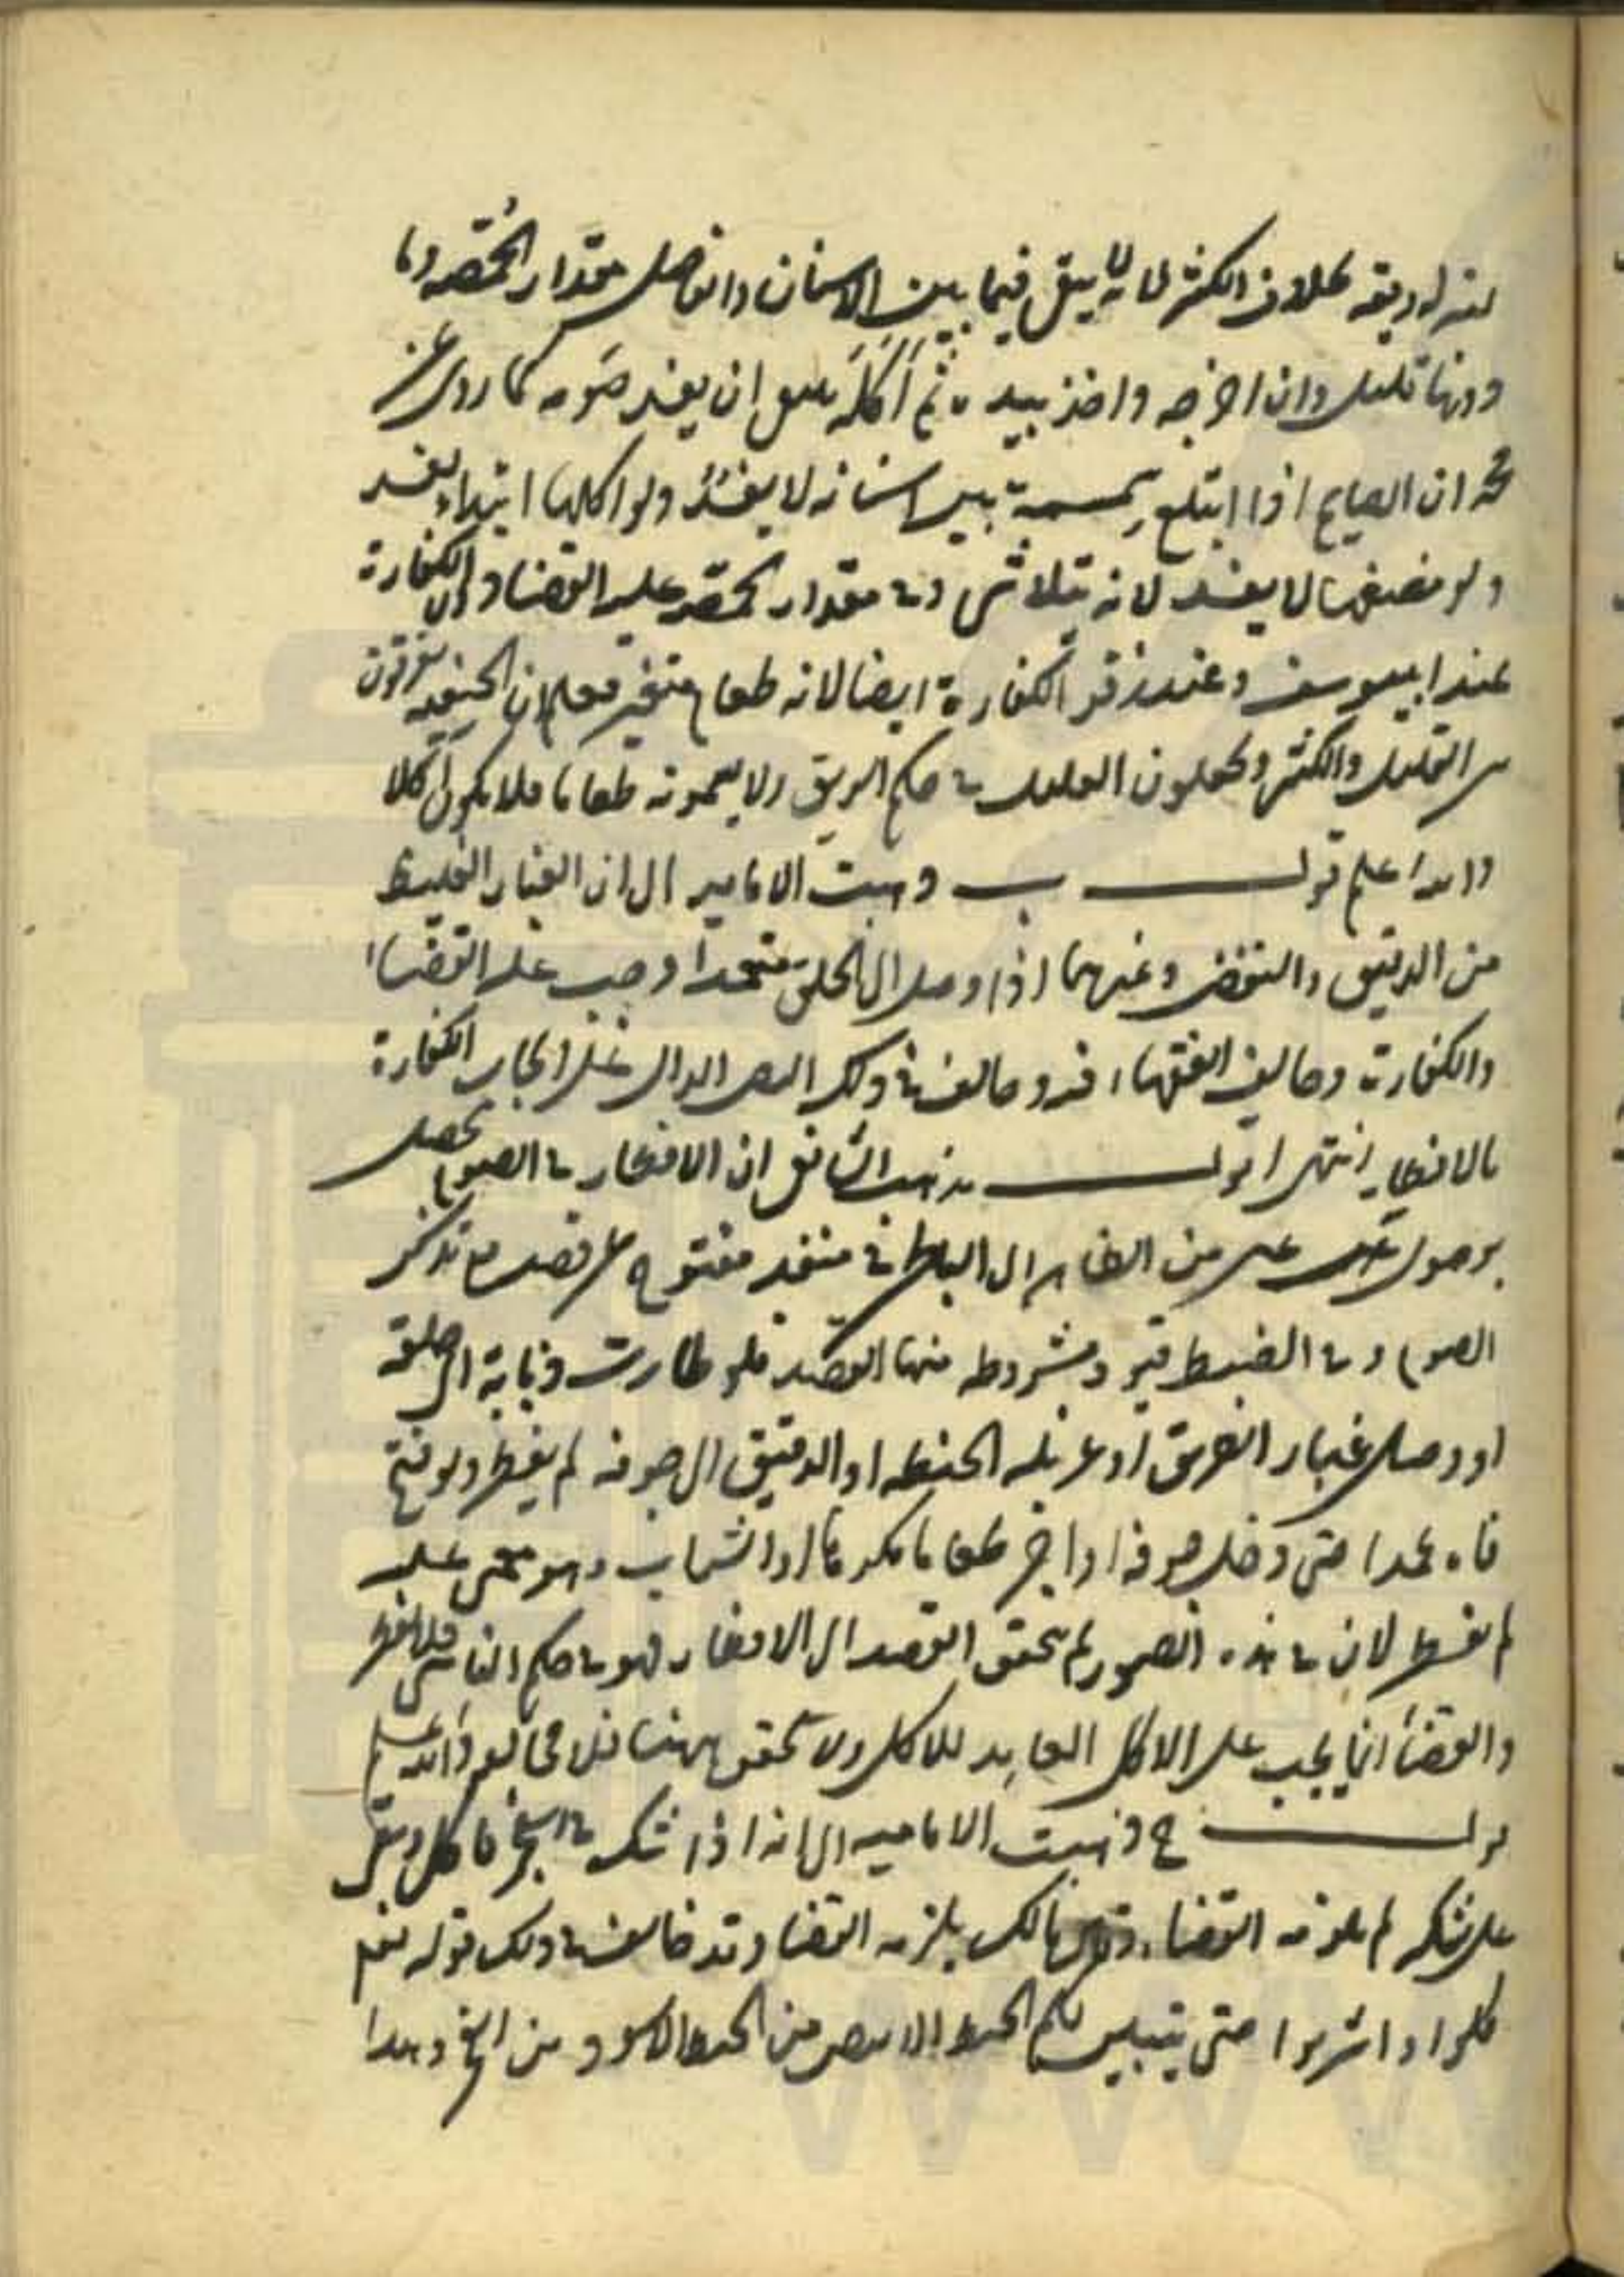 بمنزلة ريقه بخلاف الكثير لانه لا يبقى فيما بين الاسنان والفاصل مقدار الحمصه وما
دونها قليل وان اخرجه واخذ بيده ثم اكله ينبغى ان يفسد صومه كما روى عن
محمد ان الصايم اذا ابتلع سمسمة بين اسنانه لا يفسد ولو اكلها ابتداء يفسد
ولو مضغها لا يفسد لانه يتلاشى وفى مقدار الحمصه عليه القضاء دون الكفارة
عند ابيوسف وعند زفر الكفارة ايضا لانه طعام متغير فعلم ان الحنيفه يفرقون
بين القليل والكثير ويجعلون القليل فى حكم الريق ولا يسمونه طعاما فلا يكون اكلا
والله اعلم قوله ب ذهبت الاماميه الى ان الغبار الغليظ
من الدقيق والنفض وغيرهما اذا وصل الى الحلق متعمدا وجب عليه القضاء
والكفارة وخالف الفقهاء فيه وخالف فى ذلك النص الدال على ايجاب الكفارة
بالافطار انتهى اقول مذهب الشافعى ان الافطار فى الصوم يحصل
بوصول عين من الظاهر الى الباطن فى منفذ مفتوح عن قصد مع تذكر
الصوم وفى الضبط قيود مشروطه منها القصد فلو طارت ذبابة الى حلقه
او وصل غبار الطريق او غربلة الحنطه او الدقيق الى جوفه لم يفطر ولو فتح
فاه عمدا حتى دخل جوفه او اجر طعاما مكرها او الشراب وهو مغمى عليه
لم يفسد لان فى هذه الصور لم يتحقق القصد الى الافطار فهو فى حكم الناسى فلا يفطر
والقضاء انما يجب على الاكل العامد للاكل ولا تحقق ههنا فلا مخالفه والله اعلم
قوله ج ذهبت الاماميه الى انه اذا شك فى الفجر فاكل وبقى
على شكه لم يلزمه القضاء وقال مالك يلزمه القضاء وقد خالف فى ذلك قوله تعم
كلوا واشربوا حتى يتبين لكم الخيط الابيض من الخيط الاسود من الفجر وهذا